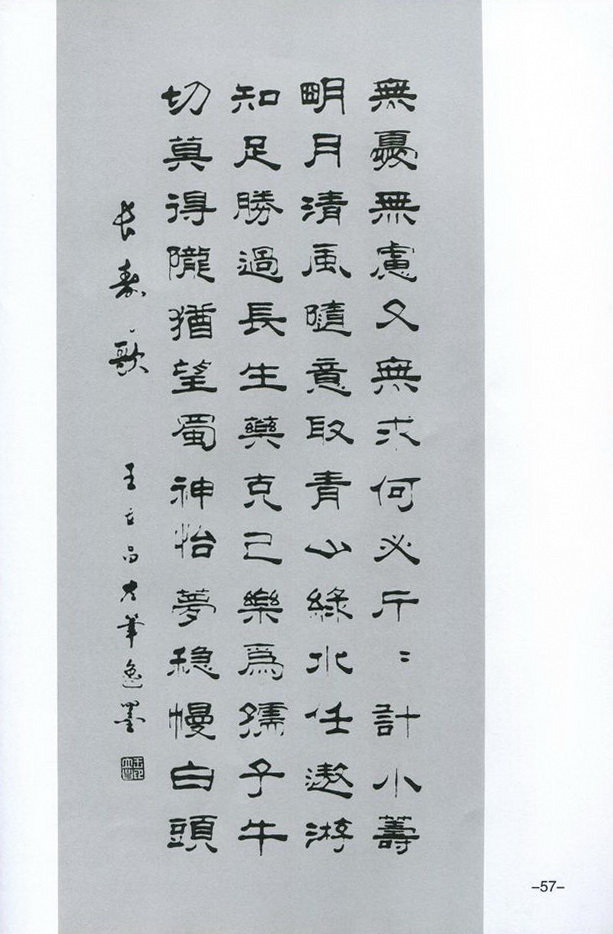 無憂無慮又無求何必斤〻計小籌
明月清風隨意取青山綠水任遨游
知足勝過長生藥克己樂爲孺子牛
切莫得隴猶望蜀神怡夢稳慢白頭
长壽歌
王 昌左筆逸墨
-57-